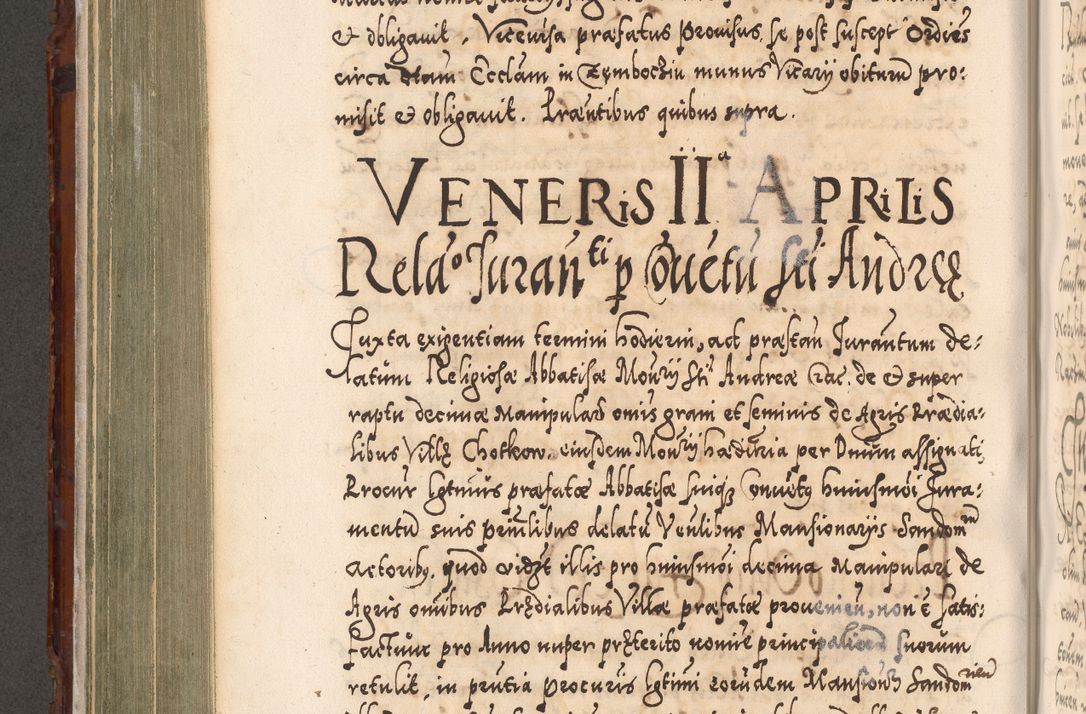 & obligavit. Vicevisa præfatus Provisus, se post suscept Ordies
circa dtam Ecclam in Zembocziu munus Vicarij obiturũ pro:
misit & obligavit. Præntibus quibus supra.
VENERis IIª APRiLiS
Relaº Juranti p Conuetũ Sti Andreę
Juxta exigentiam termini hodierni, ad præstan Jurantum de:
latum Religiosæ Abbatisæ Monrij Sti Andreæ de & super
raptu decimæ Manipulars omis grani et seminis de Agris Prædia:
libus Villę Chotkow. eiusdem Monrij hæditria per Dnum assignati,
Procur lgtimus præfatæ Abbatisæ suiqȝ Conuetus huiusmoi Jura:
mentũ suis prinlibus delatũ Venlibus Mansionarijs Sandom
Actoribȝ. quod vidȝt illis pro huiusmoi decima Manipulari de
Agris omibus Prędialibus Villæ præfatæ provenieñ, non ẽ satis:
factum pro Anno nuper prȩterito nomie principalium suorum
retulit, in prntia Procuris lgtimi eorũdem Mansionȝ Sandomrien